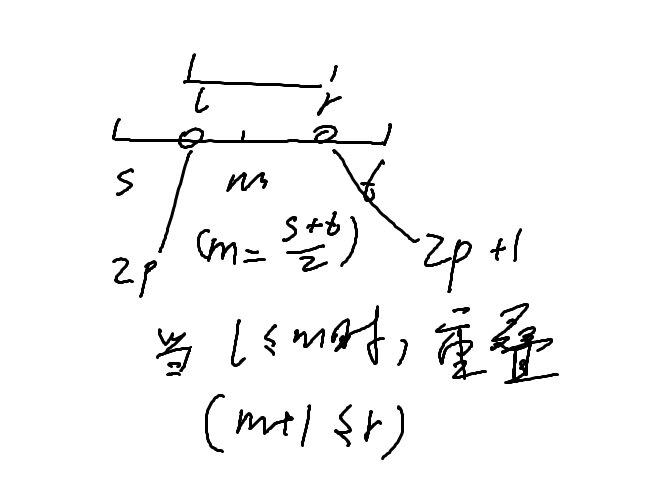 l r
s m t
2p (m = s+t/2) 2p+1
当 l ≤ m时, 重叠
(m+1 ≤ r)